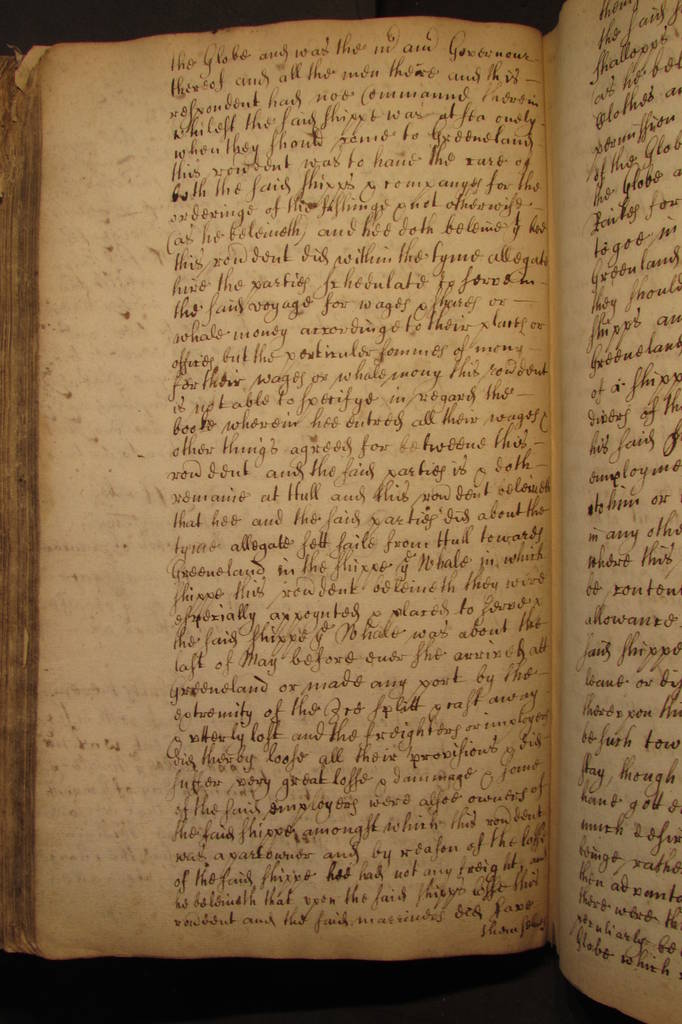 the Globe and was the mr and Governour
thereof and all the men there and this
respondent had noe Commannd therein
whilest the said shippe was at sea onely
when they should come to Greeneland
this rondent was to haue the care of
both the said shipps & companyes for the
orderinge of the ffishinge & not otherwise
(as he beleiueth) and hee doth beleiue yt hee
this rondent did within the tyme allegate
hire the parties schedulate to serve in
the said voyage for wages & shares or
whale money accordinge to their places or
offices but the perticuler sommes of mony
for their wages or whale mony this rondent
is not able to specifye in regard the
booke wherein hee entred all their wages &
other things agreed for betweene this
rondent and the said parties is & doth
remaine at Hull and this rondent beleiueth
that hee and the said parties did about the
tyme allegate sett saile from Hull towards
Greeneland in the shippe ye Whale in which
shippe this rondent beleiueth they were
especially appoynted & placed to serve &
the said shippe ye Whale was about the
last of May before ever she arrived att
Greeneland or made any port by the
extremity of the Ice splitt & cast away
& vtterly lost and the freighters or imployers
did therby loose all their provisions & did
suffer very great losse & dammage & some
of the said employers were alsoe owners of
the said shippe amongst which this rondent
was a partowner and by reason of the losse
of the said shippe hee had not any freight, and
he beleiueth that vpon the said shipps losse this
rondent and the said marriners did save
themselves
them
the said
shalloppe
as he bel
Clothes a
permission
of the Glob
the Globe a
for
to goe in
Greenland
they should
shipps an
Greeneland
of a shipp
divers of th
his said
employme
to him or
in any othe
where this
be conten
allowance
said shippe
leave or
therevpon thi
be such tow
stay, though
have gott
much desir
beinge rathe
then advanta
there were th
peculiarly be
Globe which